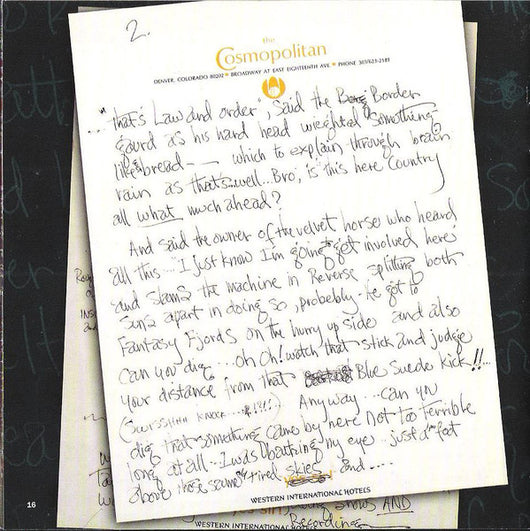 2.
the
Cosmopolitan
DENVER, COLORADO 80202 • BROADWAY AT EAST EIGHTEENTH AVE • PHONE 303/623-2181
..."that's Law and order", said the Border
gourd as his hard head weighted something
like bread -- which to explain through brain
rain as that's...well...Bro, is this here Country
all what much ahead?
And said the owner of the velvet horse who heard
all this... "I just know I'm going got involved here"
and slams the machine in Reverse splitting both
Suns apart in doing so, probably - he got to
Fantasy Fjords on the hurry up side and also
can you dig ... oh Oh! watch that stick and judge
your distance from that Blue Suede kick!!...
KNOCK Anyway ... can you
dig that something came by here Not too terrible
long at all... I was bathing my eye ... just a feet
above those same tired skies and....
WESTERN INTERNATIONAL HOTELS
WESTERN INTERNATIONAL HOTELS
shows AND
Recordings
16